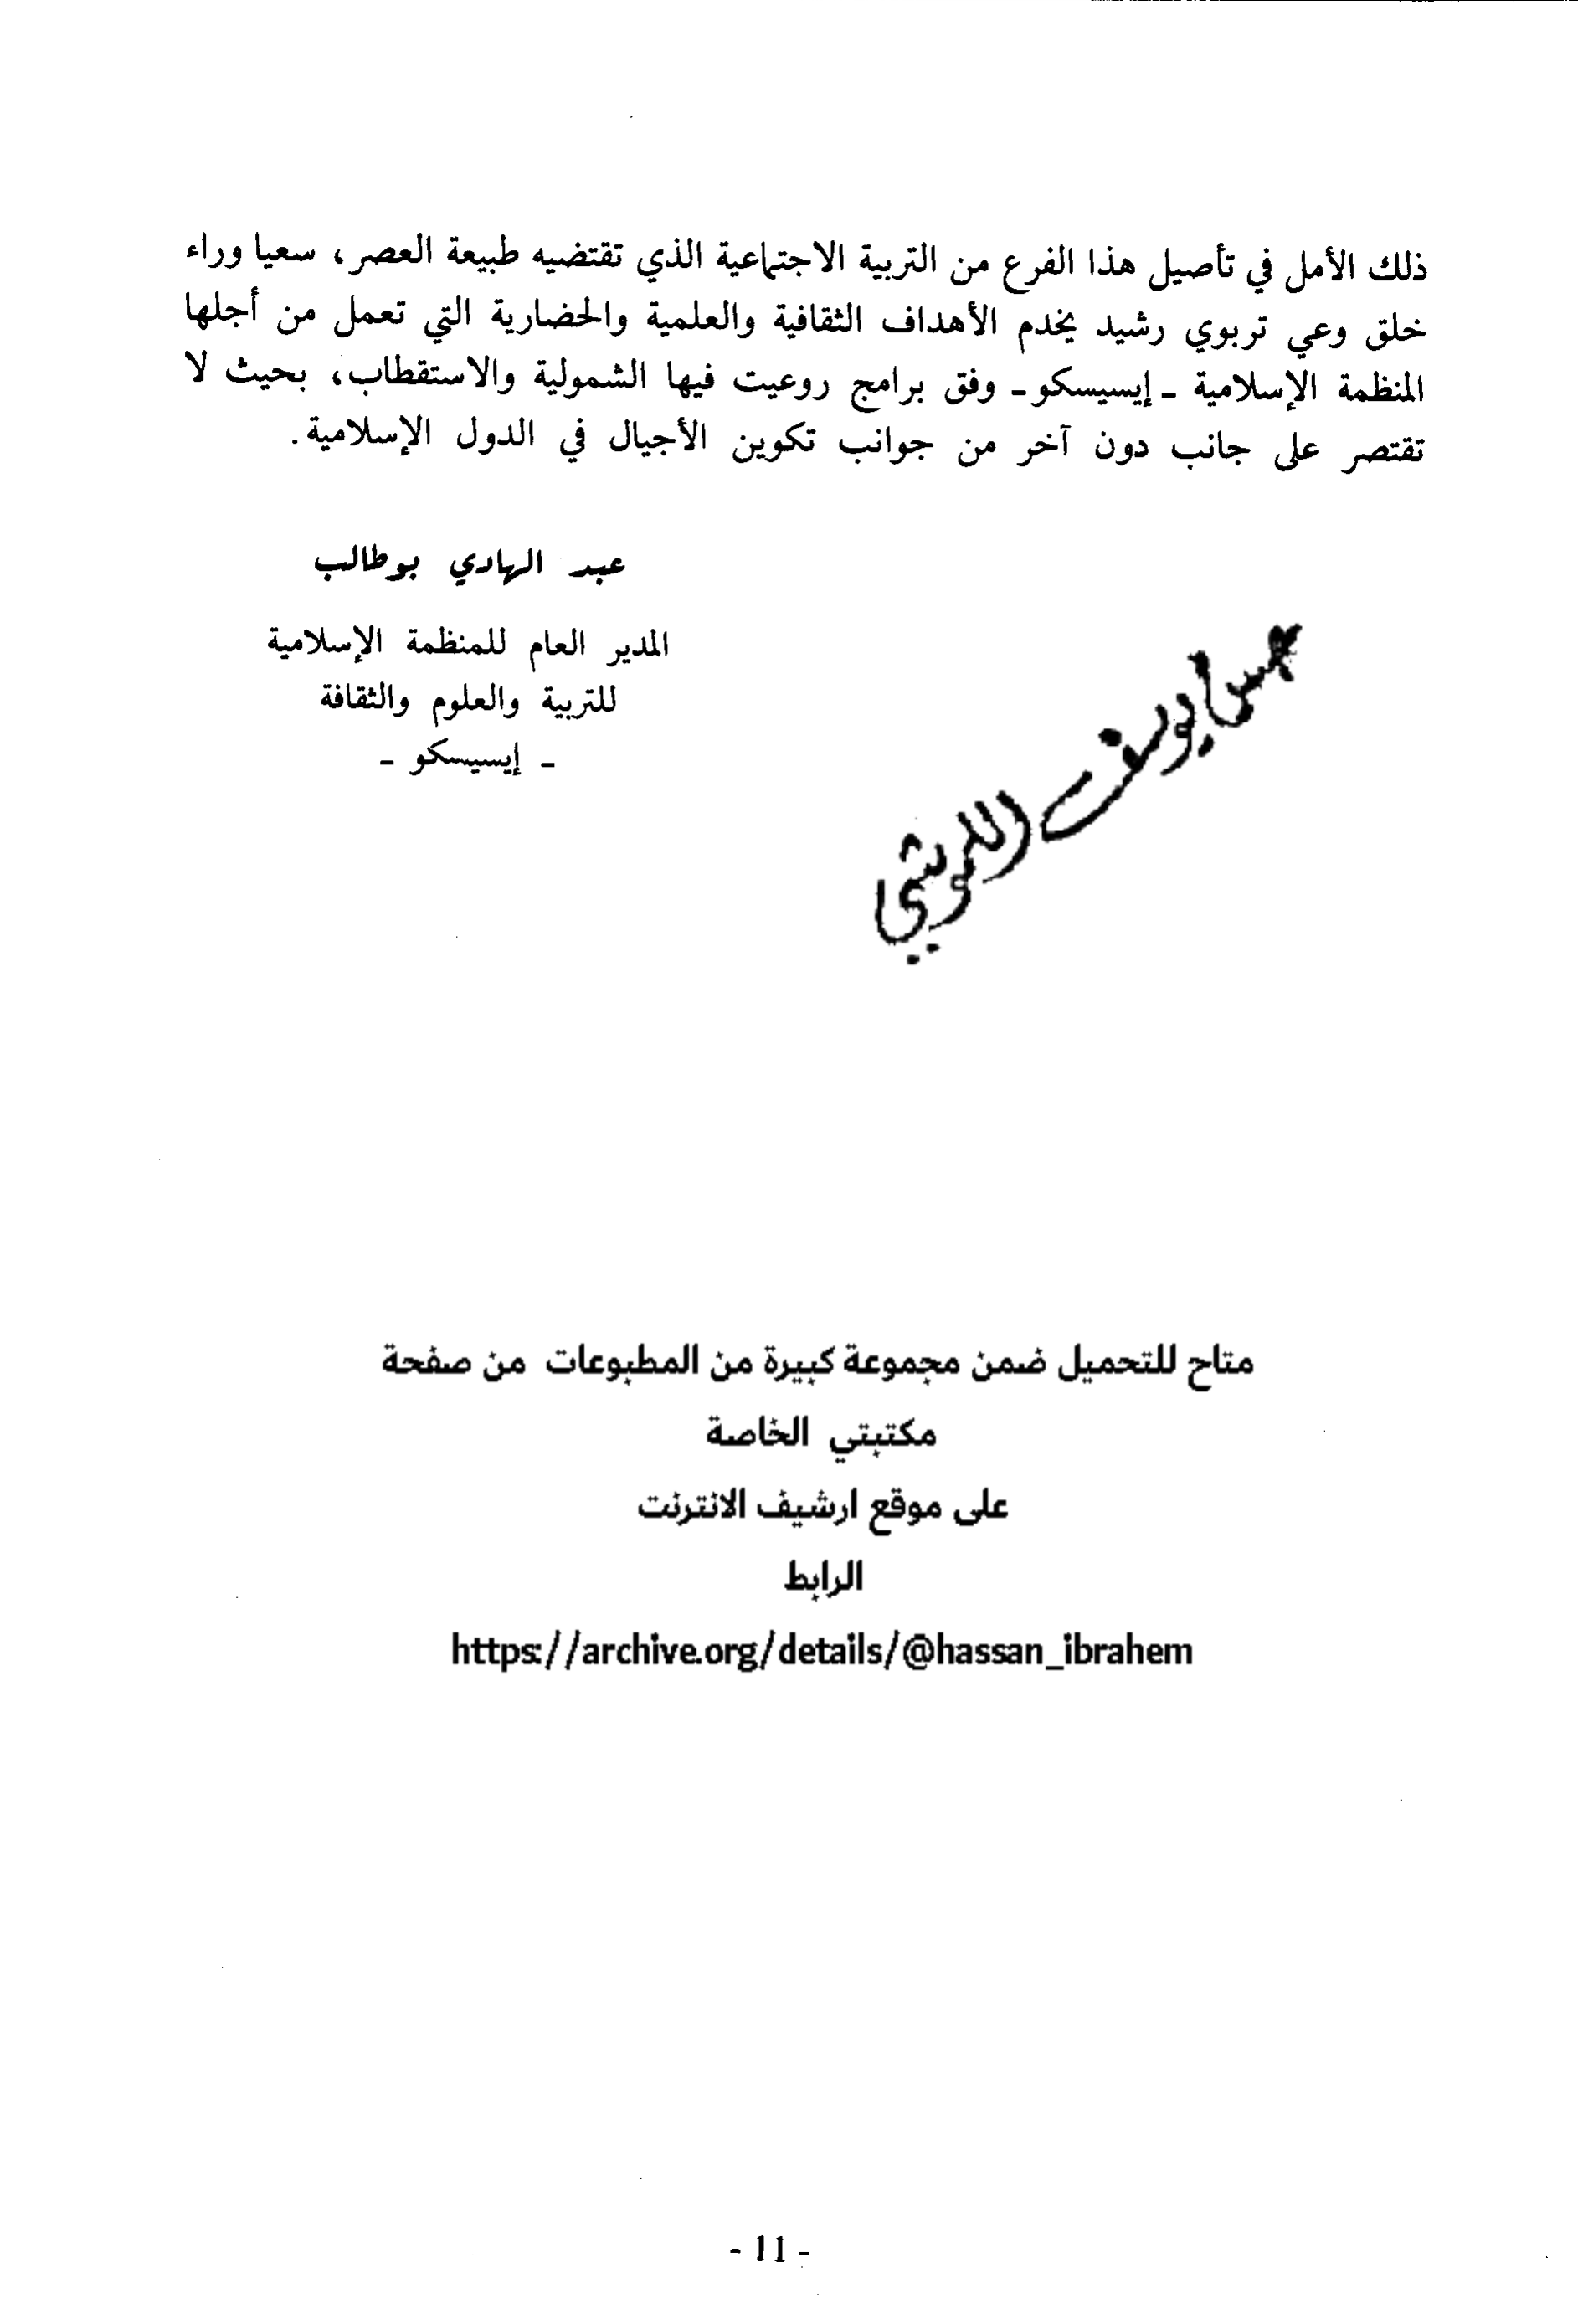 ذلك الأمل في تأصيل هذا الفرع من التربية الاجتماعية الذي تقتضيه طبيعة العصر، سعيا وراء
خلق وعي تربوي رشيد يخدم الأهداف الثقافية والعلمية والحضارية التي تعمل من أجلها
المنظمة الإسلامية ـ إيسيسكو ـ وفق برامج روعيت فيها الشمولية والاستقطاب، بحيث لا
تقتصر على جانب دون آخر من جوانب تكوين الأجيال في الدول الإسلامية.
عبد الهادي بوطالب
المدير العام للمنظمة الإسلامية
للتربية والعلوم والثقافة
ـ إيسيسكو ـ
يوسف
متاح للتحميل ضمن مجموعة كبيرة من المطبوعات من صفحة
مكتبتي الخاصة
على موقع ارشيف الانترنت
الرابط
https://archive.org/details/@hassan_ibrahem
- 11 -